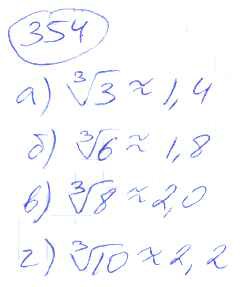 354
а) ∛3 ≈ 1,4
б) ∛6 ≈ 1,8
в) ∛8 ≈ 2,0
г) ∛10 ≈ 2,2